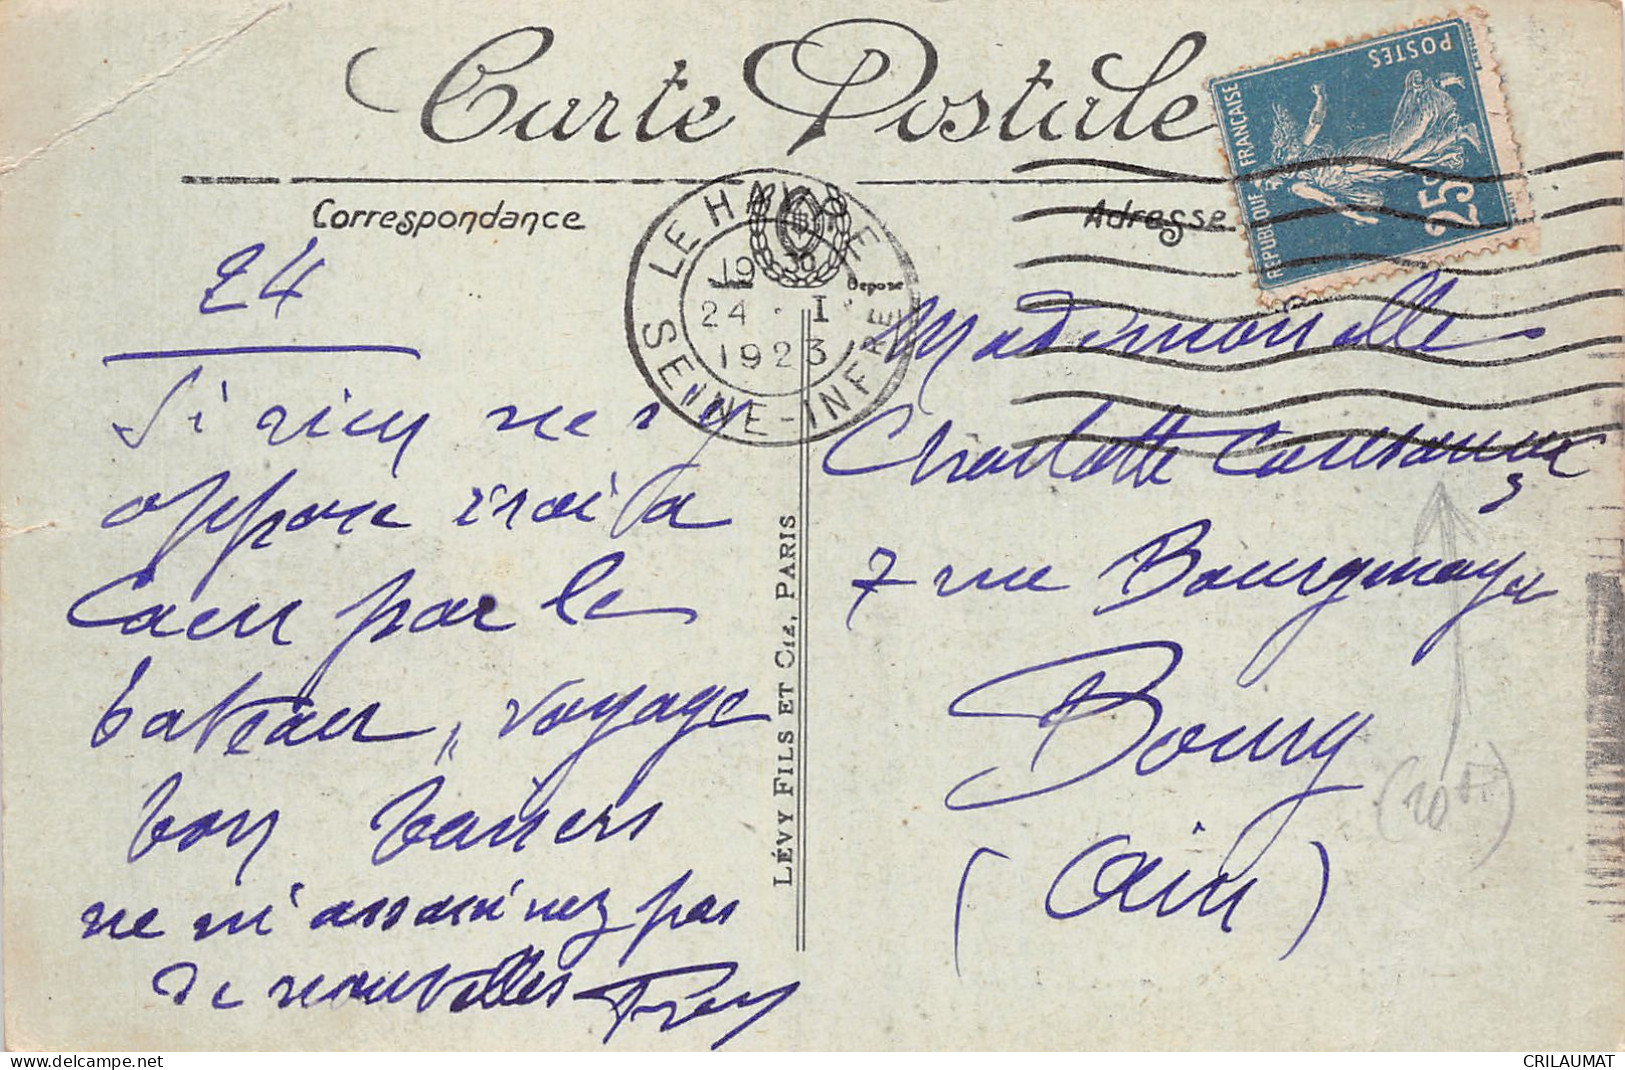 Carte Postale
Correspondance
Adresse
REPUBLIQUE FRANCAISE
POSTES
25c
LE HAVRE
SEINE-INFRE
19 30
24 · I ·
1923
Depose
LÉVY FILS ET CIE, PARIS
24
Si rien ne s'y
oppose irai à
Caen par le
bateau, voyage
bon baisers
ne m'assassinez pas
de nouvelles
Mademoiselle
Charlotte
7 rue Bourgmayer
Bourg
(Ain)
delcampe.net
CRILAUMAT